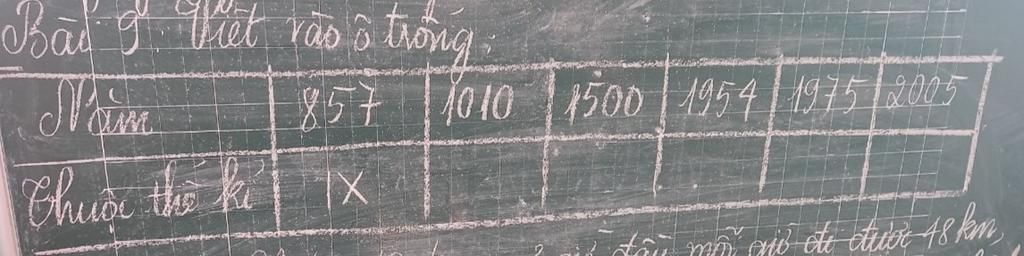 Bài 9. Viết vào ô trống.
Năm 857 1010 1500 1954 1975 2005
Thuộc thế kỉ IX
đầu mỗi giờ đi được 48 km,